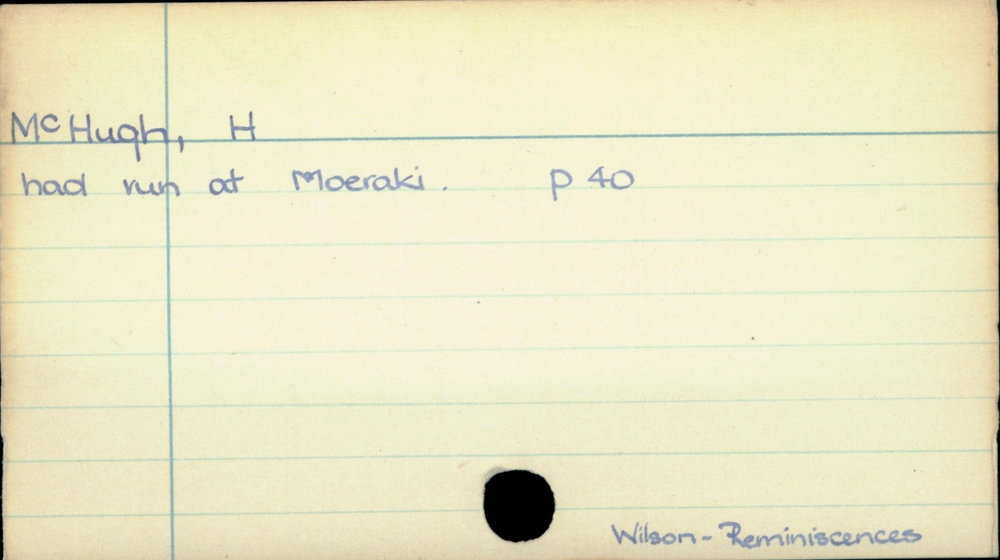 McHugh, H
had run at Moeraki. p 40
Wilson - Reminiscences